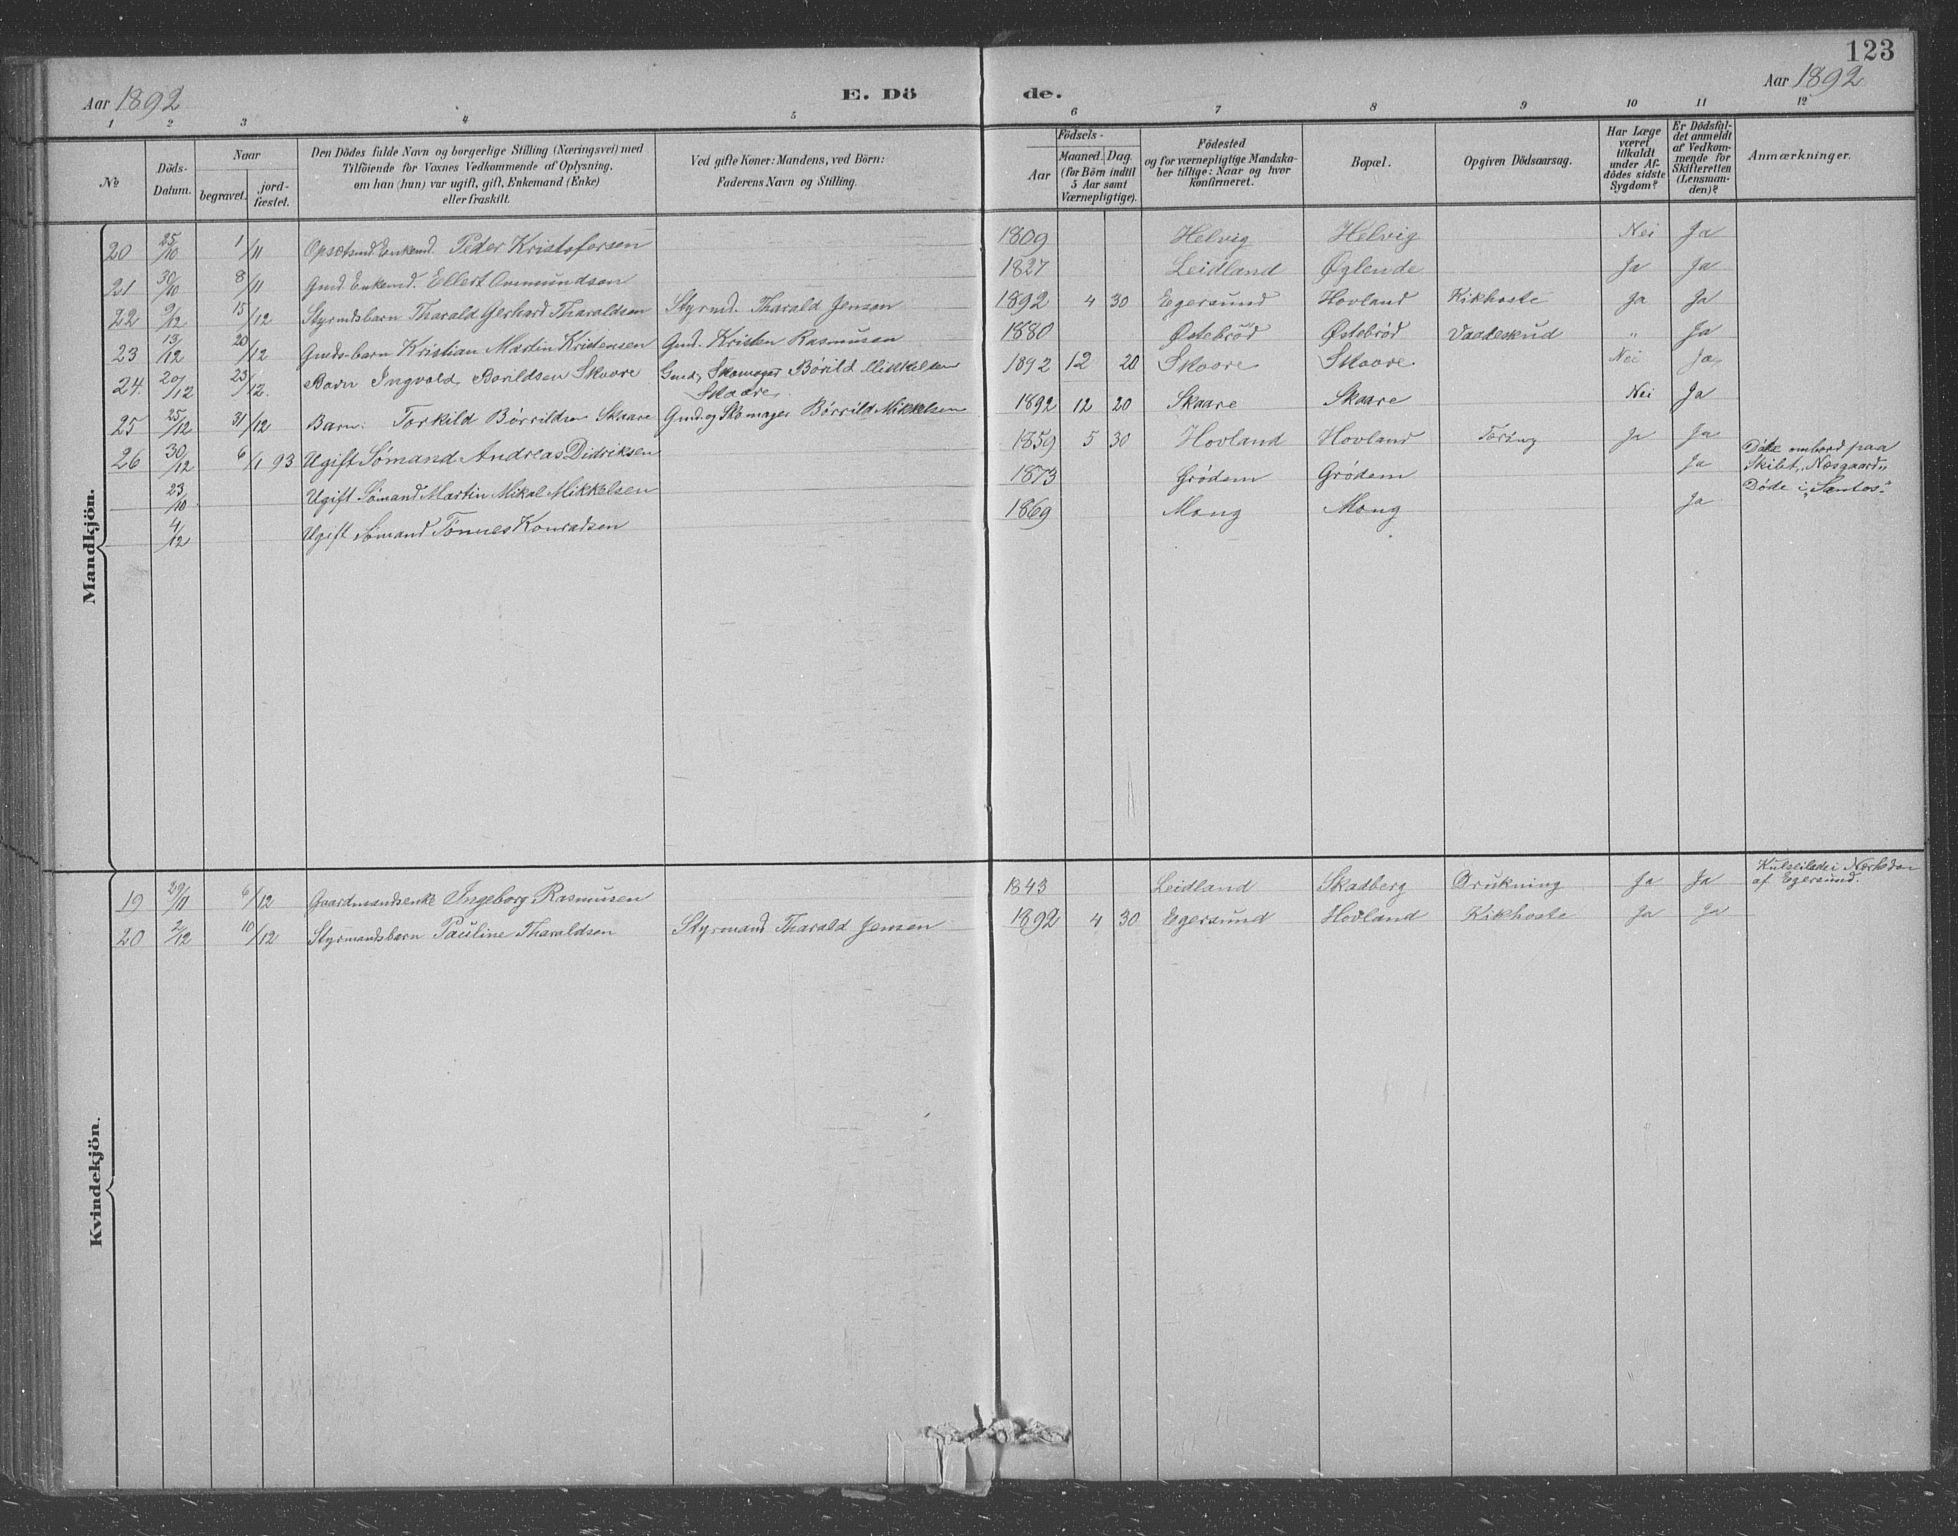 123
Aar 1892 E. Dö de. Aar 1892
1 2 3 4 5 6 7 8 9 10 11 12
№
Döds-
Datum.
Naar
begravet.
jord-
fæstet.
Den Dödes fulde Navn og borgerlige Stilling (Næringsvei) med
Tilföiende for Voxnes Vedkommende af Oplysning,
om han (hun) var ugift, gift, Enkemand (Enke)
eller fraskilt.
Ved gifte Koner: Mandens, ved Börn:
Faderens Navn og Stilling.
Födsels-
Aar
Maaned. Dag.
(for Börn indtil
5 Aar samt
Værnepligtige).
Födested
og for værnepligtige Mandska-
ber tillige: Naar og hvor
konfirmeret.
Bopæl.
Opgiven Dödsaarsag.
Har Læge
været
tilkaldt
under Af-
dödes sidste
Sygdom?
Er Dödsfal-
det anmeldt
af Vedkom-
mende for
Skifteretten
(Lensman-
den)?
Anmærkninger.
Mandkjön.
20 25/10 1/11 Opsætsmd Enkemd. Peder Kristofersen 1809 Helvig Helvig Nei Ja
21 30/10 8/11 Gmd. Enkemd. Ellert Ommundsen 1827 Leidland Øglende Ja Ja
22 9/12 15/12 Styrmdsbarn Tharald Gerhard Tharaldsen Styrmd. Tharald Jensen 1892 4 30 Egersund Hovland Kikhoste Ja Ja
23 13/12 20/12 Gmds-barn Kristian Martin Kristensen Gmd. Kristen Rasmusen 1880 Østebrød Østebrød Vaadeskud " Ja
24. 20/12 25/12. Barn Ingvald Borildsen Skaare Gmd, Skomager Børild Mikkelsen
Skaare. 1892 12 20 Skaare Skaare. Nei Ja
25 25/12 31/12 Barn: Torkild Børrildsen Skaare Gmd. og Skomager Børrild Mikkelsen 1892 12 20 Skaare Skaare Nei Ja
26 30/12 6/1 93 Ugift Sømand Andreas Didriksen 1859 5 30 Hovland Hovland Tæring Ja Ja
23/10 Ugift Sømand Martin Mikal Mikkelsen 1873 Grødem Grødem Ja Døde ombord paa
Skibet "Næsgaard"
4/12 Ugift Sømand Tønnes Konradsen 1869 Mong Mong Ja Døde i "Santos"
Kvindekjön.
19 29/11 6/12 Gaardmandsenke Ingeborg Rasmusen 1843 Leidland Skadberg Drukning Ja Ja Nærheden
af Egersund.
20 2/12 10/12 Styrmandsbarn Pauline Tharaldsen Styrmand Tharald Jensen 1892 4 30 Egersund Hovland Kikhoste Ja Ja